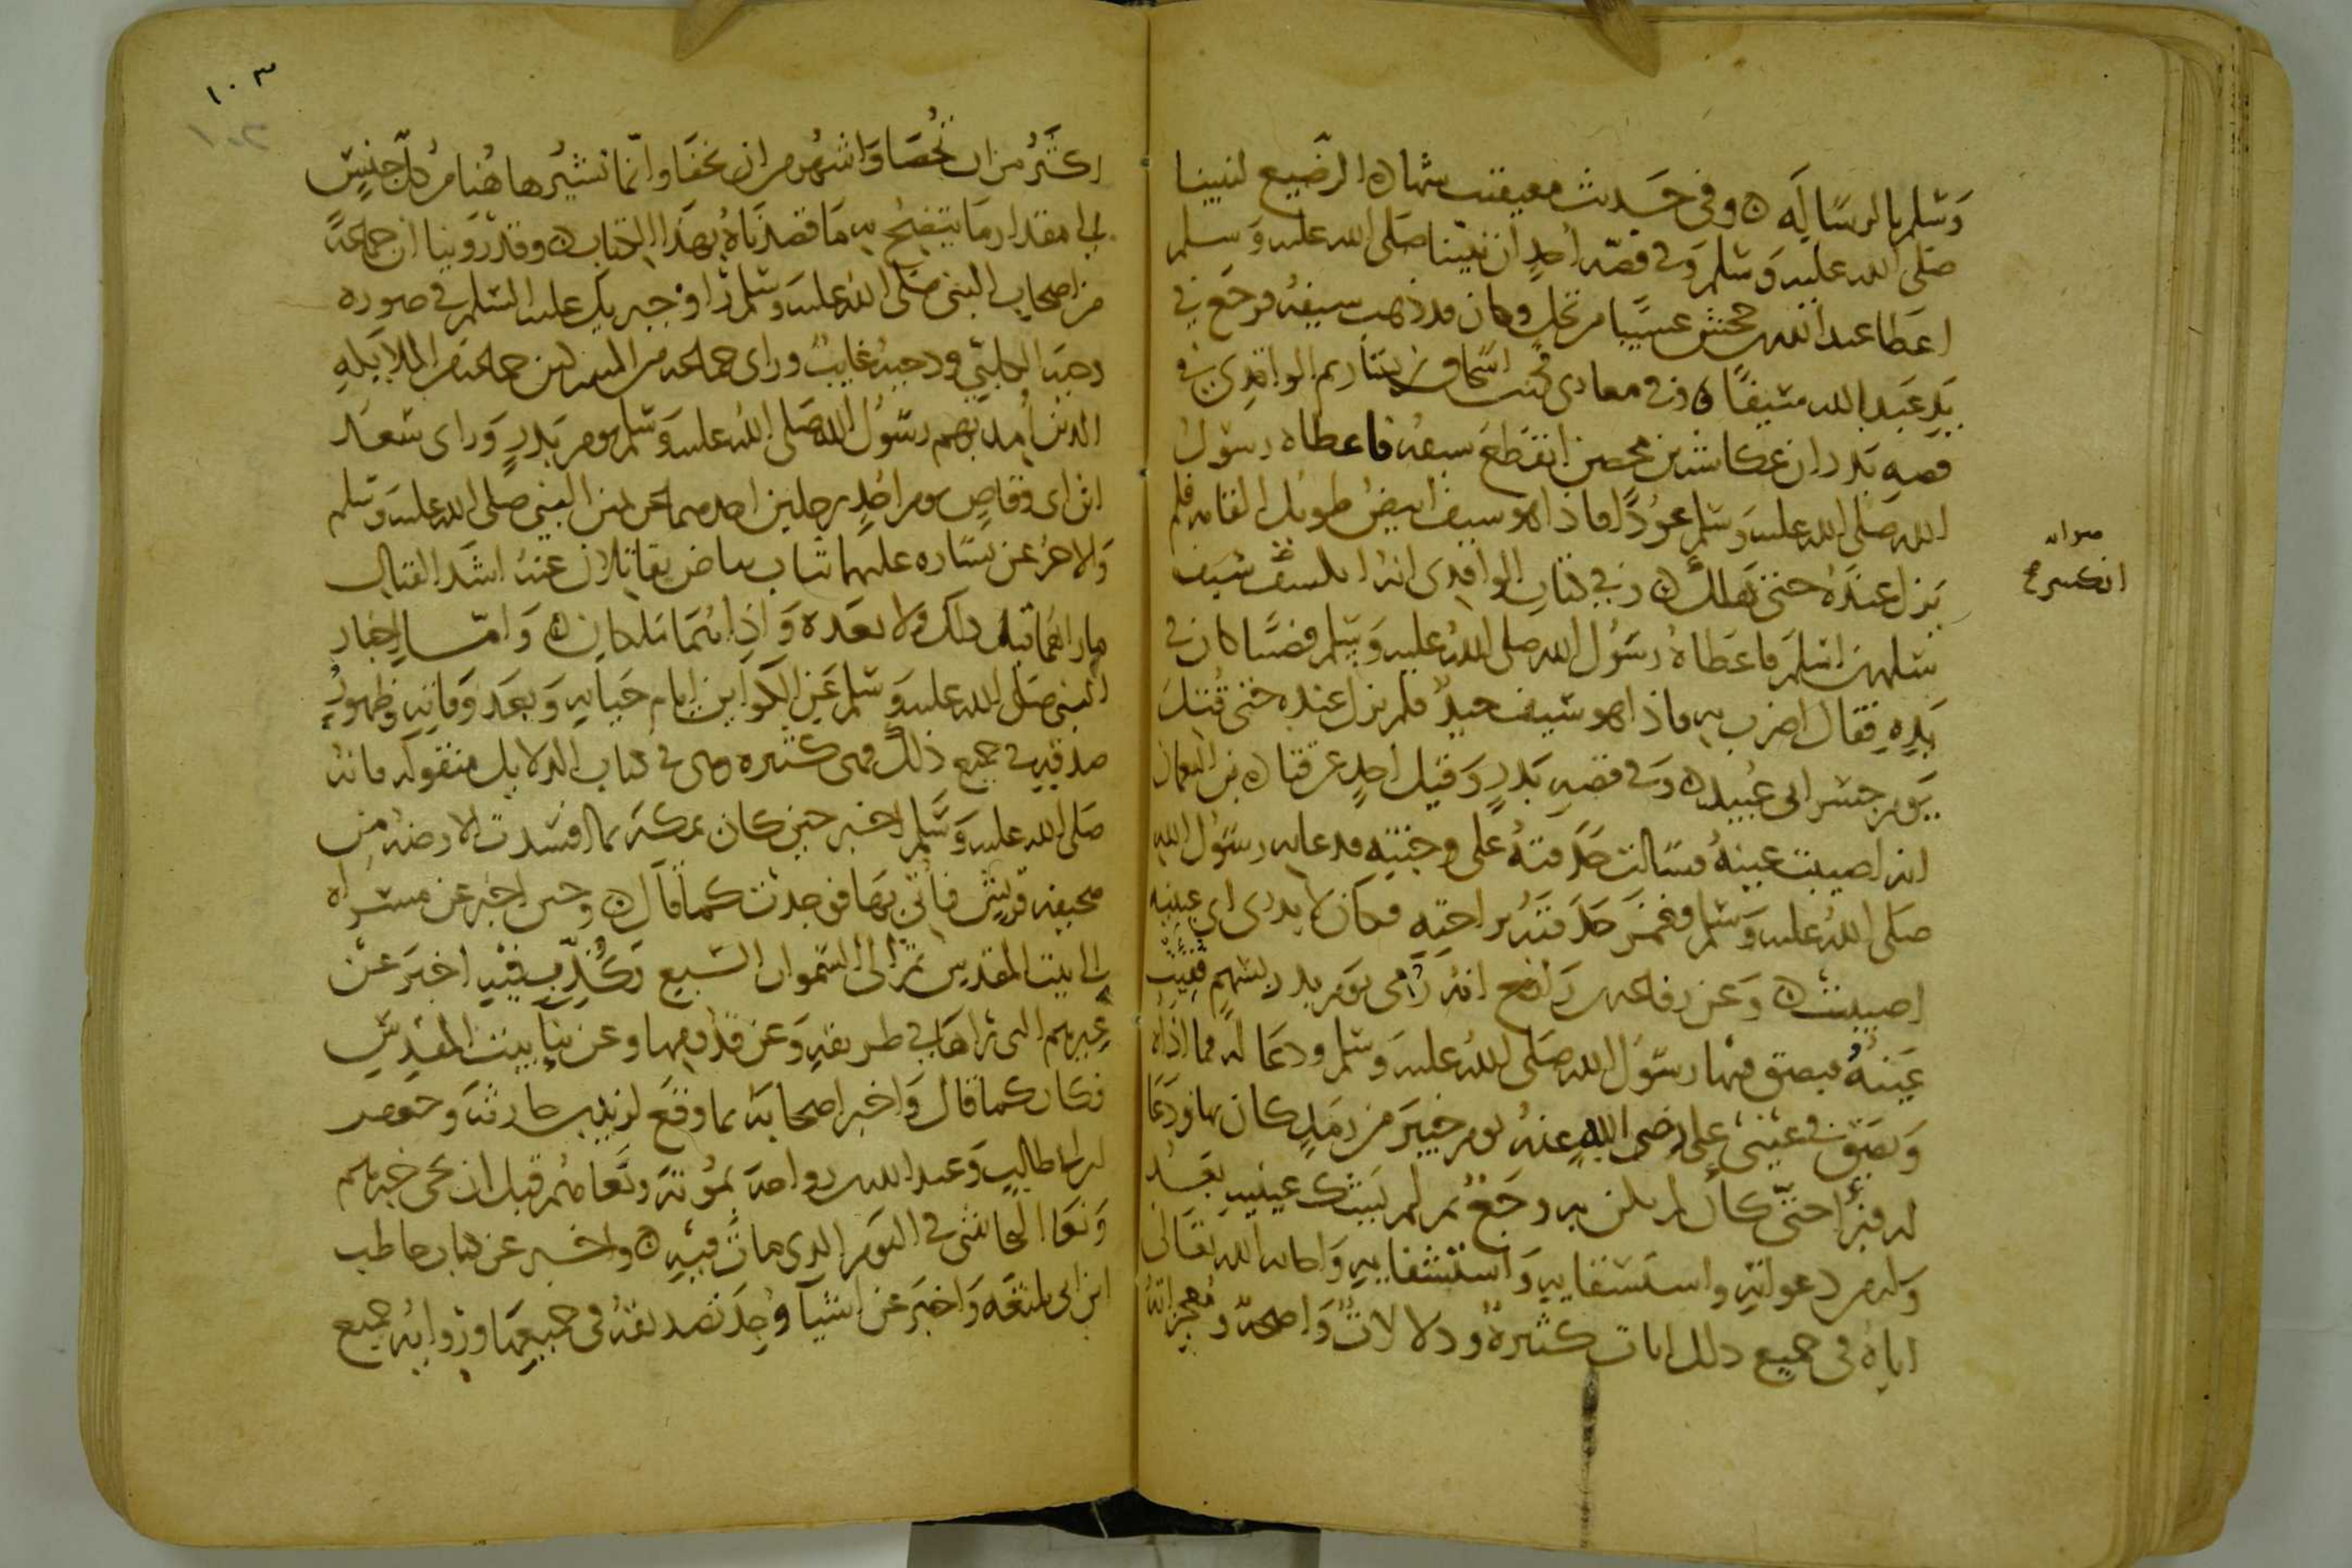 وسلم بالرسالة ۞ وفي حديث معيقيب شهادة الرضيع لنبينا
صلى الله عليه وسلم وفي قصة احد ان نبينا صلى الله عليه وسلم
اعطا عبد الله بن جحش عسيبا من نخل وكان قد ذهب سيفه فرجع في
يد عبد الله سيفا ۞ وفي مغازي محمد بن اسحاق بن يسار ثم الواقدي في
قصه بدر ان عكاشه بن محصن انقطع سيفه فاعطاه رسول
الله صلى الله عليه وسلم عودا فاذا هو سيف ابيض طويل القامه فلم
يزل عنده حتى هلك ۞ وفي كتاب الواقدي انه انكسف سيف
سلمه بن اسلم فاعطاه رسول الله صلى الله عليه وسلم قضيبا كان في
يده فقال اضرب به فاذا هو سيف جيد فلم يزل عنده حتى قتل
يوم جسر ابي عبيد ۞ وفي قصه بدر وقيل احد عن قتادة بن النعمان
انه اصيبت عينه فسالت حدقته على وجنته فدعا به رسول الله
صلى الله عليه وسلم فغمز حدقته براحته فكان لا يدري اي عينيه
اصيبت ۞ وعن رفاعه بن رافع انه رمي يوم بدر بسهم ففقئت
عينه فبصق فيها رسول الله صلى الله عليه وسلم ودعا له فما اذاه
وبصق في عيني علي رضي الله عنه يوم خيبر من رمد كان بها ودعا
له فبرأ حتى كأن لم يكن به وجع ثم لم يشك عينيه بعد
وله من دعواته واستسقايه واستشفايه واجابه الله تعالى
اياه في جميع ذلك ايات كثيرة ودلالات واضحة ومعجزاته
صوابه
انكسر صح
١٠٣
١٠٢
اكثر من ان تحصا واشهر من ان تخفا وانما نشير هاهنا من كل جنس
الى مقدار ما يتضح به ما قصدناه بهذا الكتاب ۞ وقد روينا ان جماعة
من اصحاب النبي صلى الله عليه وسلم راو جبريل عليه السلم في صورة
دحية الكلبي ودحية غايب وراى جماعه من المشركين جماعة من الملايكه
الذين امد بهم رسول الله صلى الله عليه وسلم يوم بدر وراى سعد
ابن ابي وقاص يوم احد رجلين احدهما عن يمين النبي صلى الله عليه وسلم
والاخر عن يساره عليهما ثياب بياض يقاتلان عنه اشد القتال
ما راهما قبل ذلك ولا بعده واذا هما ملكان ۞ واما اخبار
النبي صلى الله عليه وسلم عن الكواين ايام حياته وبعد وفاته وظهور
صدقه في جميع ذلك فهي كثيره وهي في كتاب الدلايل منقولة فانه
صلى الله عليه وسلم اخبر حين كان بمكة بما افسدت الارضة من
صحيفه قريش فاتي بها فوجدت كما قال ۞ وحين اخبر عن مسراه
الى بيت المقدس ثم الى السموات السبع وكذب فيه اخبر عن
عيرهم التي راها في طريقه وعن قدومها وعن بنا بيت المقدس
فكان كما قال واخبر اصحابه بما وقع لزيد بن حارثة وجعفر
ابن ابي طالب وعبد الله بن رواحة بمؤتة ونعاهم قبل ان يجي خبرهم
ونعا النجاشي في اليوم الذي مات فيه ۞ واخبر عن كتاب حاطب
ابن ابي بلتعه واخبر عن اشيآ وجد تصديقه في جميعها ورواية جميع